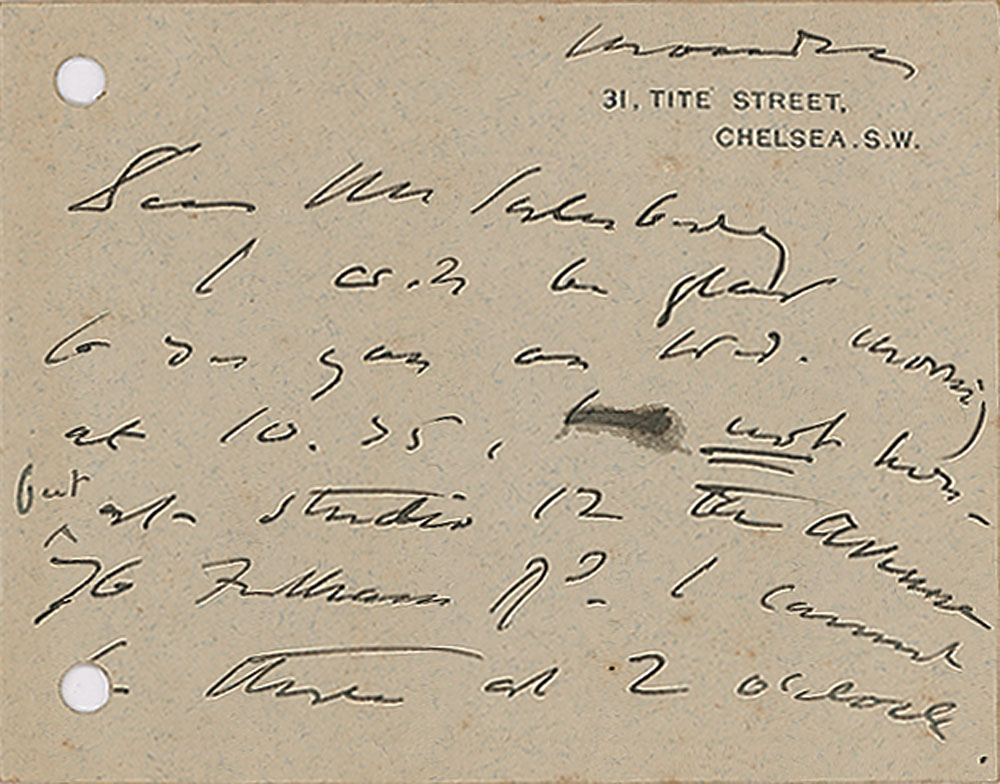 Monday
31, TITE STREET,
CHELSEA. S.W.
Dear Mr
I will be glad
to see you on Wed. morning
at 10.35, not here -
but
^
at studio 12 The Avenue
76 Fulham Rd. I cannot
be there at 2 o'clock
.